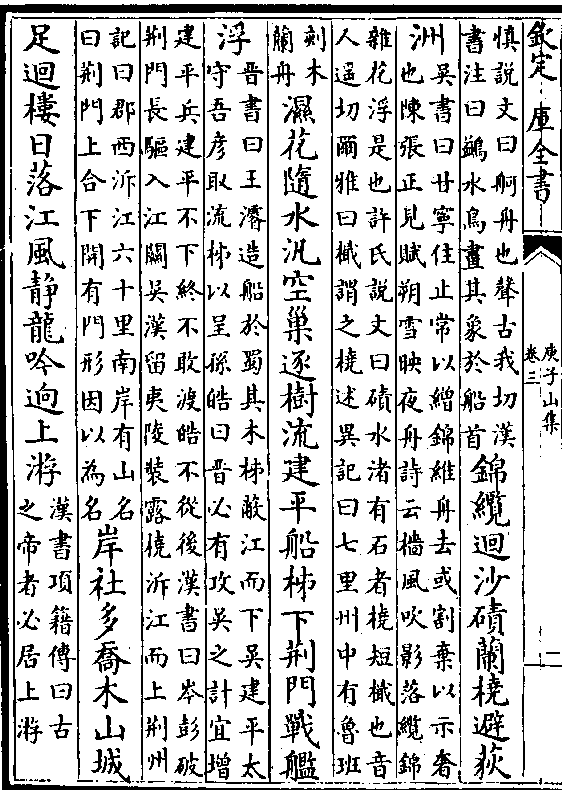 欽定 庫全書
庾子山集
卷三
二
慎說文曰舸舟也聲古我切漢
書注曰鷁水鳥畫其象於船首
錦纜迴沙磧蘭橈避荻
洲
吳書曰甘寧住止常以繒錦維舟去或割棄以示奢
也陳張正見賦朔雪映夜舟詩云檣風吹影落纜錦
雜花浮是也許氏說文曰磧水渚有石者橈短檝也音
人遥切爾雅曰檝謂之橈述異記曰七里州中有魯班
刻木
蘭舟
濕花隨水汎空巢逐樹流建平船柹下荆門戰艦
浮
晉書曰王濬造船於蜀其木柹蔽江而下吳建平太
守吾彦取流柹以呈孫皓曰晉必有攻吳之計宜增
建平兵建平不下終不敢渡皓不從後漢書曰岑彭破
荆門長驅入江關吳漢留夷陵裝露橈泝江而上荆州
記曰郡西泝江六十里南岸有山名
曰荆門上合下開有門形因以為名
岸社多喬木山城
足迴樓日落江風静龍吟迥上游
漢書項籍傳曰古
之帝者必居上游